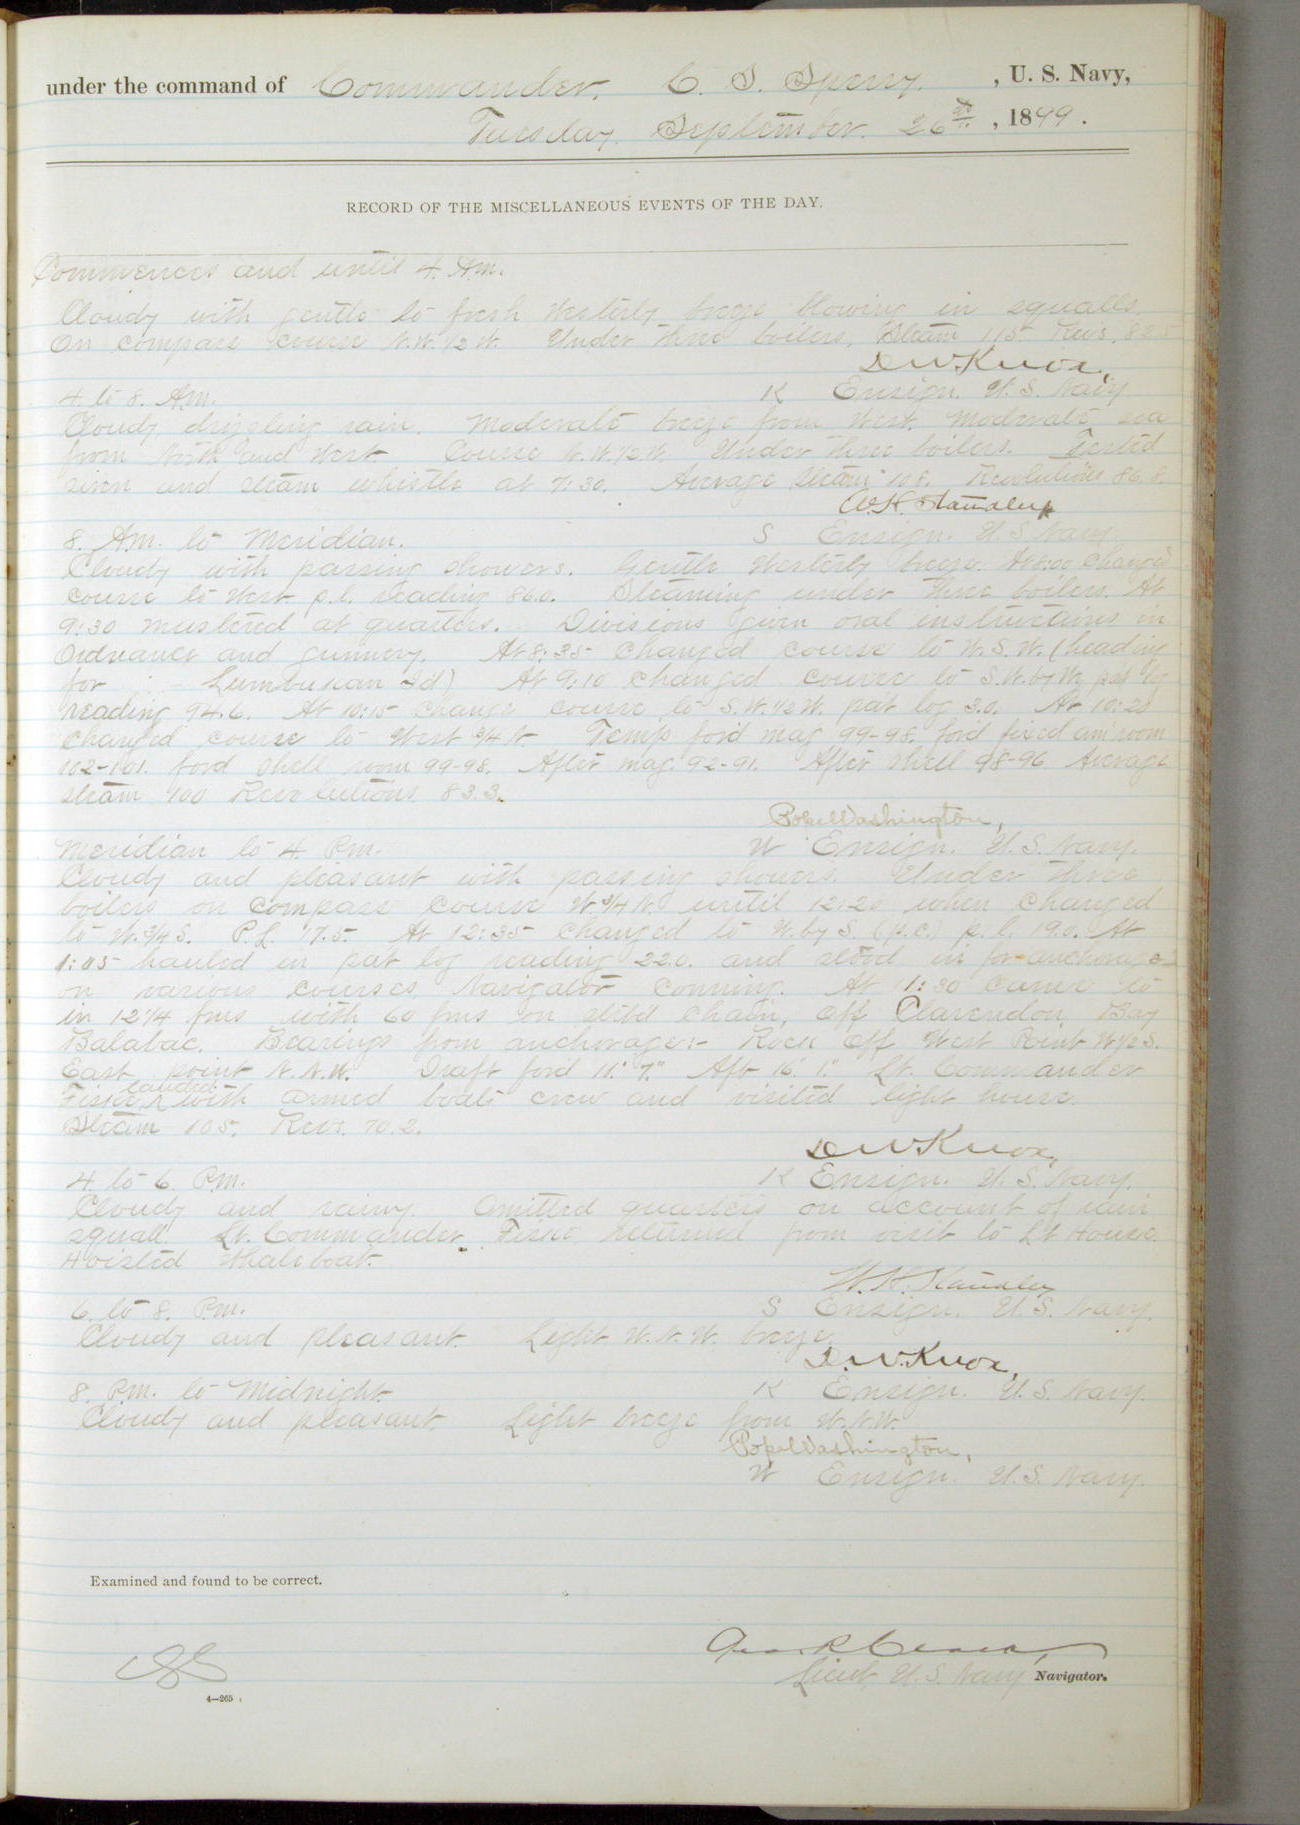 under the command of Commander. C. S. Sperry. , U. S. Navy,
Tuesday. September. 26th , 1899.
RECORD OF THE MISCELLANEOUS EVENTS OF THE DAY.
Commences and until 4. Am.
Cloudy with gentle to fresh Westerly breeze blowing in squalls.
On compass course N.W. 1/2 W. Under three boilers, Steam 115 Revs. 82
D W. Knox,
4. to 8. Am. K Ensign. U. S. Navy
Cloudy, drizzling rain. Moderate breeze from West. Moderate sea
from North and West. Course N.W. 1/2 W. Under three boilers. Tested
siren and steam whistle at 7:30. Average Steam 108. Revolutions 86.8.
W.H. Standley
8. Am. to Meridian. S Ensign. U. S. Navy.
Cloudy with passing showers. Gentle Westerly breeze. At 8:00 changed
course to West p.l. reading 86.0. Steaming under three boilers. At
9:30 mustered at quarters. Divisions given oral instructions in
Ordnance and gunnery. At 8:35 changed course to W.S.W. (heading
for Lumbukan Id) At 9:10 changed course to S.W. by W. pat lg
reading 94.6. At 10:15 change course to S.W. 1/2 W. pat log 3.0. At 10:20
changed course to West 3/4 N. Temp for'd mag 99-98, for'd fixed am room
102-101. for'd shell room 99-98. After mag. 92-91. After shell 98-96 Average
steam 100 Revolutions 83.3.
Pope Washington,
Meridian to 4. Pm. W Ensign. U. S. Navy.
Cloudy and pleasant with passing showers. Under three
boilers on compass course W 3/4 N. until 12:20 when changed
to W. 3/4 S. P.l. 17.5. At 12:35 changed to W. by S. (p.c.) p. l. 19.0. At
1:05 hauled in pat log reading 22.0. and stood in for anchorage
on various courses, Navigator conning. At 1:30 came to
in 12 1/4 fms with 60 fms on stb'd chain, off Clarendon Bay
Balabac. Bearings from anchorage:- Rock off West Point W 1/2 S.
East point N. N. W. Draft for'd 11' 7." Aft 16' 1." Lt. Commander
landed
with armed boats crew and visited light house.
Steam 105. Revs. 70.2.
D W Knox,
4. to 6. Pm. K Ensign. U. S. Navy.
Cloudy and rainy. Omitted quarters on account of rain
squall. Lt. Commander returned from visit to Lt House.
Hoisted Whale boat.
W. H. Standley
6. to 8. Pm. S Ensign. U. S. Navy.
Cloudy and pleasant. Light W. N. W. breeze.
D. W. Knox,
8. Pm. to Midnight. K Ensign. U. S. Navy.
Cloudy and pleasant. Light breeze from W.N.W.
Pope Washington,
W Ensign. U. S. Navy.
Examined and found to be correct.
Lieut, U. S. Navy Navigator.
4—265